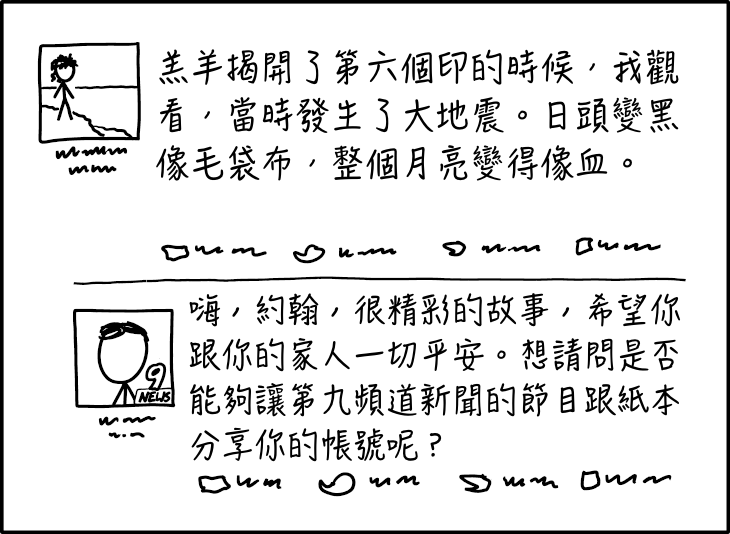 羔羊揭開了第六個印的時候，我觀
看，當時發生了大地震。日頭變黑
像毛袋布，整個月亮變得像血。
嗨，約翰，很精彩的故事，希望你
跟你的家人一切平安。想請問是否
能夠讓第九頻道新聞的節目跟紙本
分享你的帳號呢？
9
NEWS